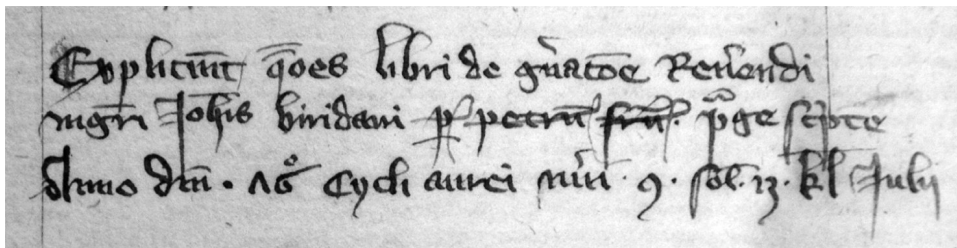 Expliciūt q̄oes libri de gn̄atōe Reu̓endi
mgr̄i Joh̄is biridani ꝑ petrū pᵃge scͥpte
Anno dm̄ · cycli aurei nūi · 9 · sol̄ · 13 · kl̄ Julij